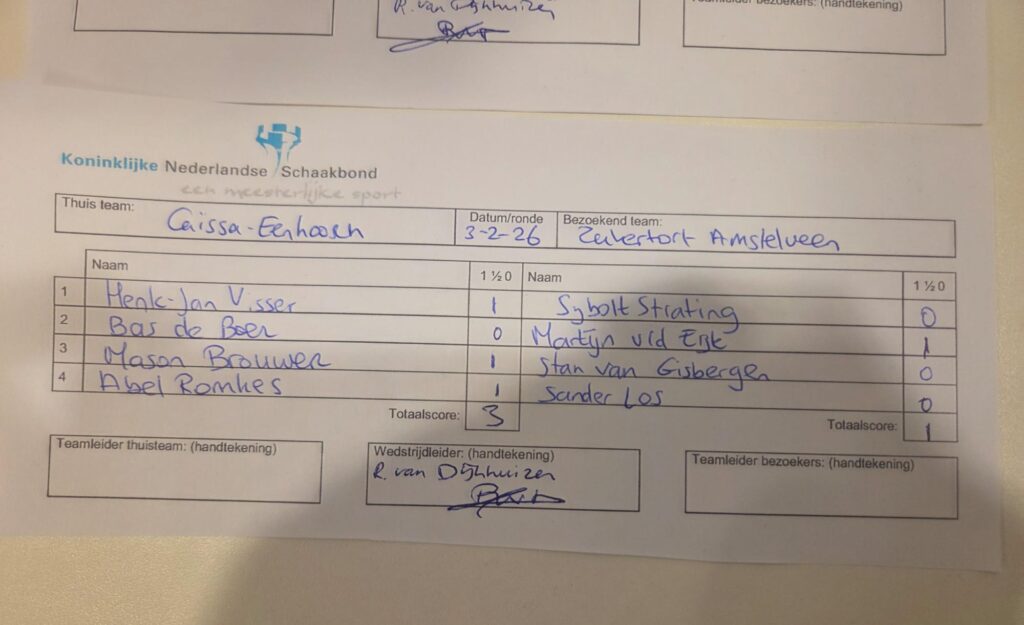 Teamleider bezoekers: (handtekening)
R. van Dijhhuizen
Koninklijke Nederlandse Schaakbond
een meesterlijke sport
Thuis team: Caissa-Eenhoorn Datum/ronde 3-2-26 Bezoekend team: Zukertort Amstelveen
Naam 1 ½ 0 Naam 1 ½ 0
1 Henk-Jan Visser 1 Sybolt Strating 0
2 Bas de Boer 0 Martijn v/d Eijk 1
3 Mason Brouwer 1 Stan van Gisbergen 0
4 Abel Romkes 1 Sander Los 0
Totaalscore: 3 Totaalscore: 1
Teamleider thuisteam: (handtekening) Wedstrijdleider: (handtekening) Teamleider bezoekers: (handtekening)
R. van Dijhhuizen